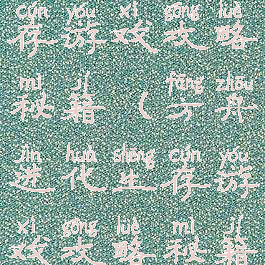 cún yóu xì gōng lüè
存游戏攻略
mì jí fāng zhōu
秘籍(方舟
jìn huà shēng cún yóu
进化生存游
xì gōng lüè mì jí
戏攻略秘籍